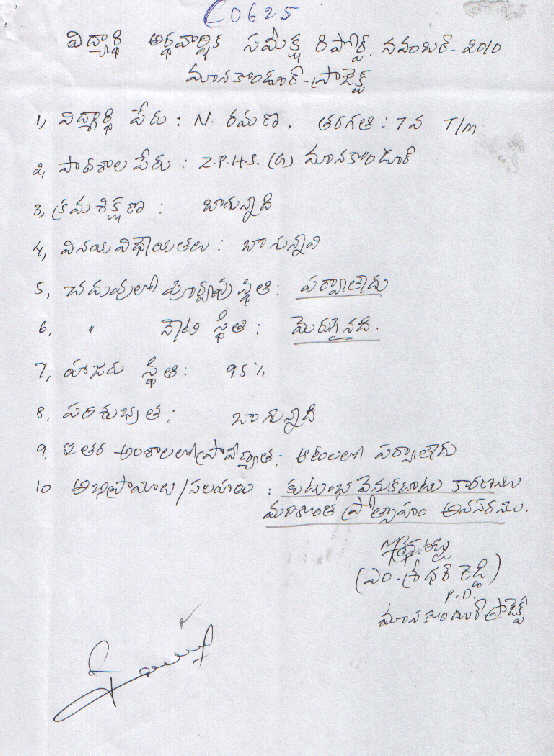 C0625
విద్యార్థి అర్థవార్షిక సమీక్ష రిపోర్ట్, నవంబర్-2010
మానకొండూర్-ప్రాజెక్ట్
1, విద్యార్థి పేరు : N. రమణ. తరగతి : 7వ T/m
2, పాఠశాల పేరు : Z.P.H.S. (B) మానకొండూర్
3, క్రమశిక్షణ : బాగున్నది
4, వినయవిధేయతలు : బాగున్నవి
5, చదువులో పూర్వపు స్థితి : పర్వాలేదు
6, " నేటి స్థితి : మెరుగైనది.
7, హాజరు స్థితి : 95%
8, పరిశుభ్రత : బాగున్నది
9, ఇతర అంశాలలో ప్రావీణ్యత : ఆటలలో పర్వాలేదు
10 అభిప్రాయాలు/సలహాలు : కుటుంబ వెనుకబాటు కారణంగా
మరికొంత ప్రోత్సాహం అవసరము.
(ఎం. శ్రీధర్ రెడ్డి)
P.D.
మానకొండూర్ ప్రాజెక్ట్